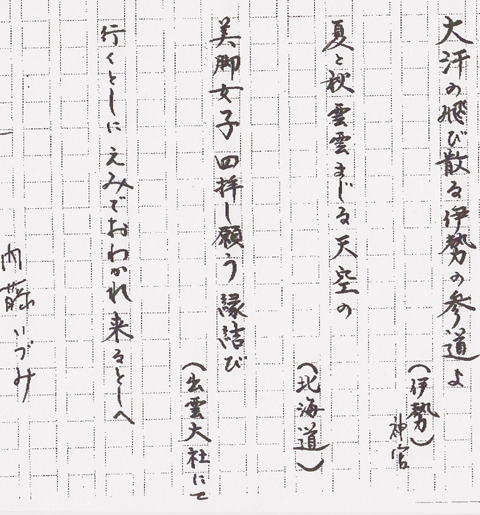 大汗の飛び散る伊勢の参道よ
(伊勢)
神宮
夏と秋雲雲まじる天空の
(北海道)
美脚女子四拝し願う縁結び
(出雲大社にて
行くとしにえみでおわかれ来るとしへ
内藤いづみ